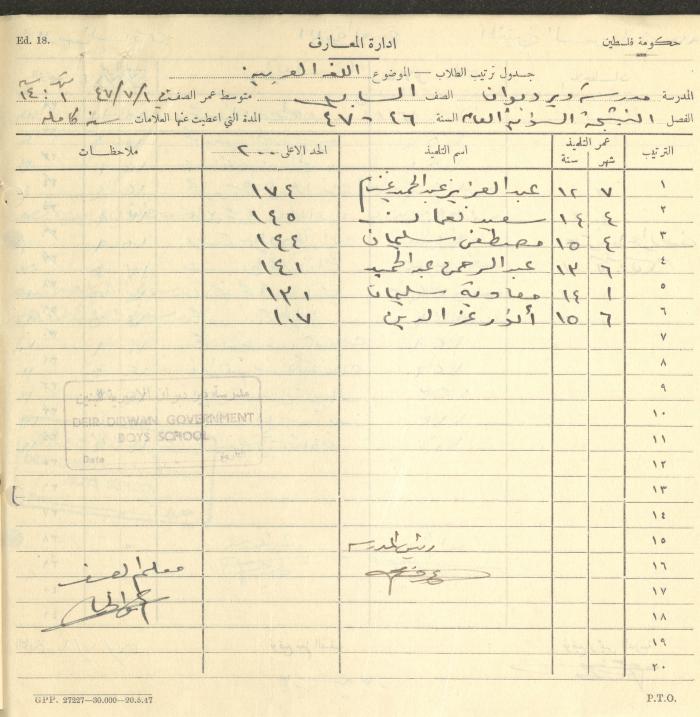 Ed. 18.
ادارة المعارف
حكومة فلسطين
جدول ترتيب الطلاب — الموضوع اللغه العربيه
المدرسة مدرسة ديردبوان الصف السابع متوسط عمر الصف في ٤٧/٧/١
الفصل النتيجة السنوية العامه السنة ٤٦ - ٤٧ المدة التي اعطيت عنها العلامات سنه كامله
الترتيب عمر التلميذ شهر سنة اسم التلميذ الحد الاعلى ٢٠٠ ملاحظات
١ ٧ ١٢ عبد العزيز عبد الحميد غنيم ١٧٤
٢ ٤ ١٤ سعيد نعمان ١٤٥
٣ ٤ ١٥ مصطفى سليمان ١٤٤
٤ ٦ ١٣ عبد الرحمن عبد الحميد ١٤١
٥ ١ ١٤ معاوية سليمان ١٣١
٦ ٦ ١٥ أنور عز الدين ١٠٧
٧
٨
٩
مدرسة دير دبوان الاميرية للبنين
DEIR DIBWAN GOVERNMENT
BOYS SCHOOL
Date التاريخ
١٠
١١
١٢
١٣
١٤
١٥ رئيس المدرسه
١٦ معلم الصف
١٧
١٨
١٩
٢٠
GPP. 27227—30.000—20.5.47
P.T.O.